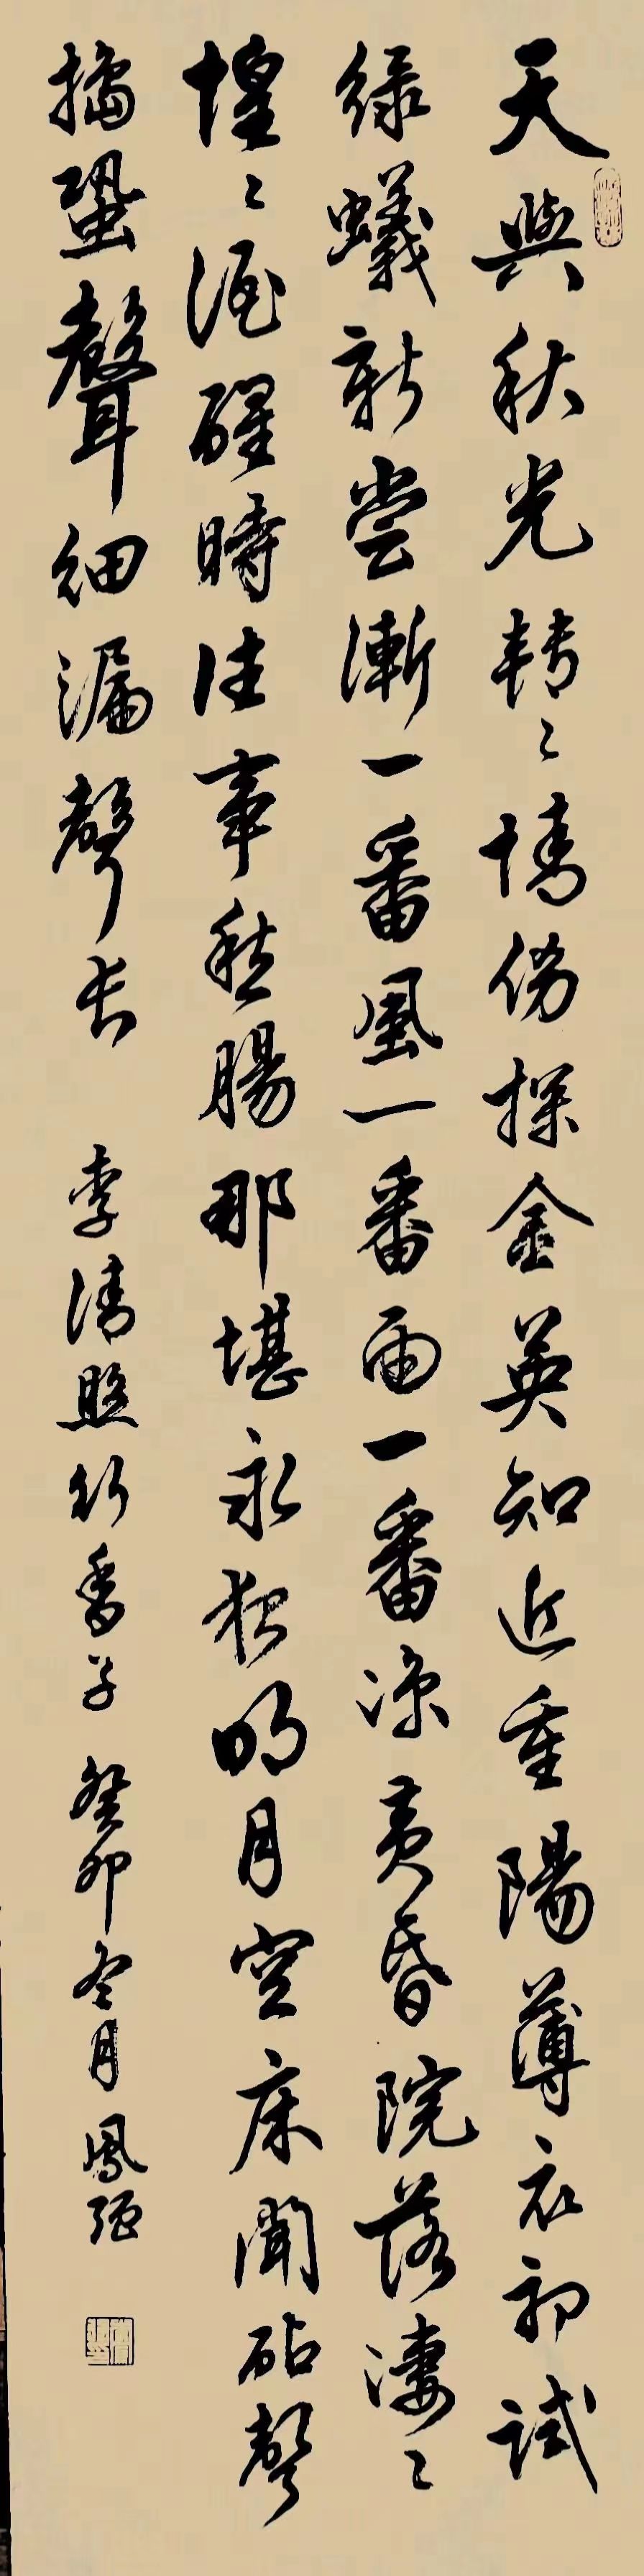 天與秋光轉〻情傷探金英知近重陽薄衣初試
綠蟻新尝漸一番風一番雨一番涼黃昏院落淒〻
惶〻酒醒時往事愁腸那堪永夜明月空床聞砧聲
搗蛩聲細漏聲長 李清照行香子 癸卯冬月 鳳強